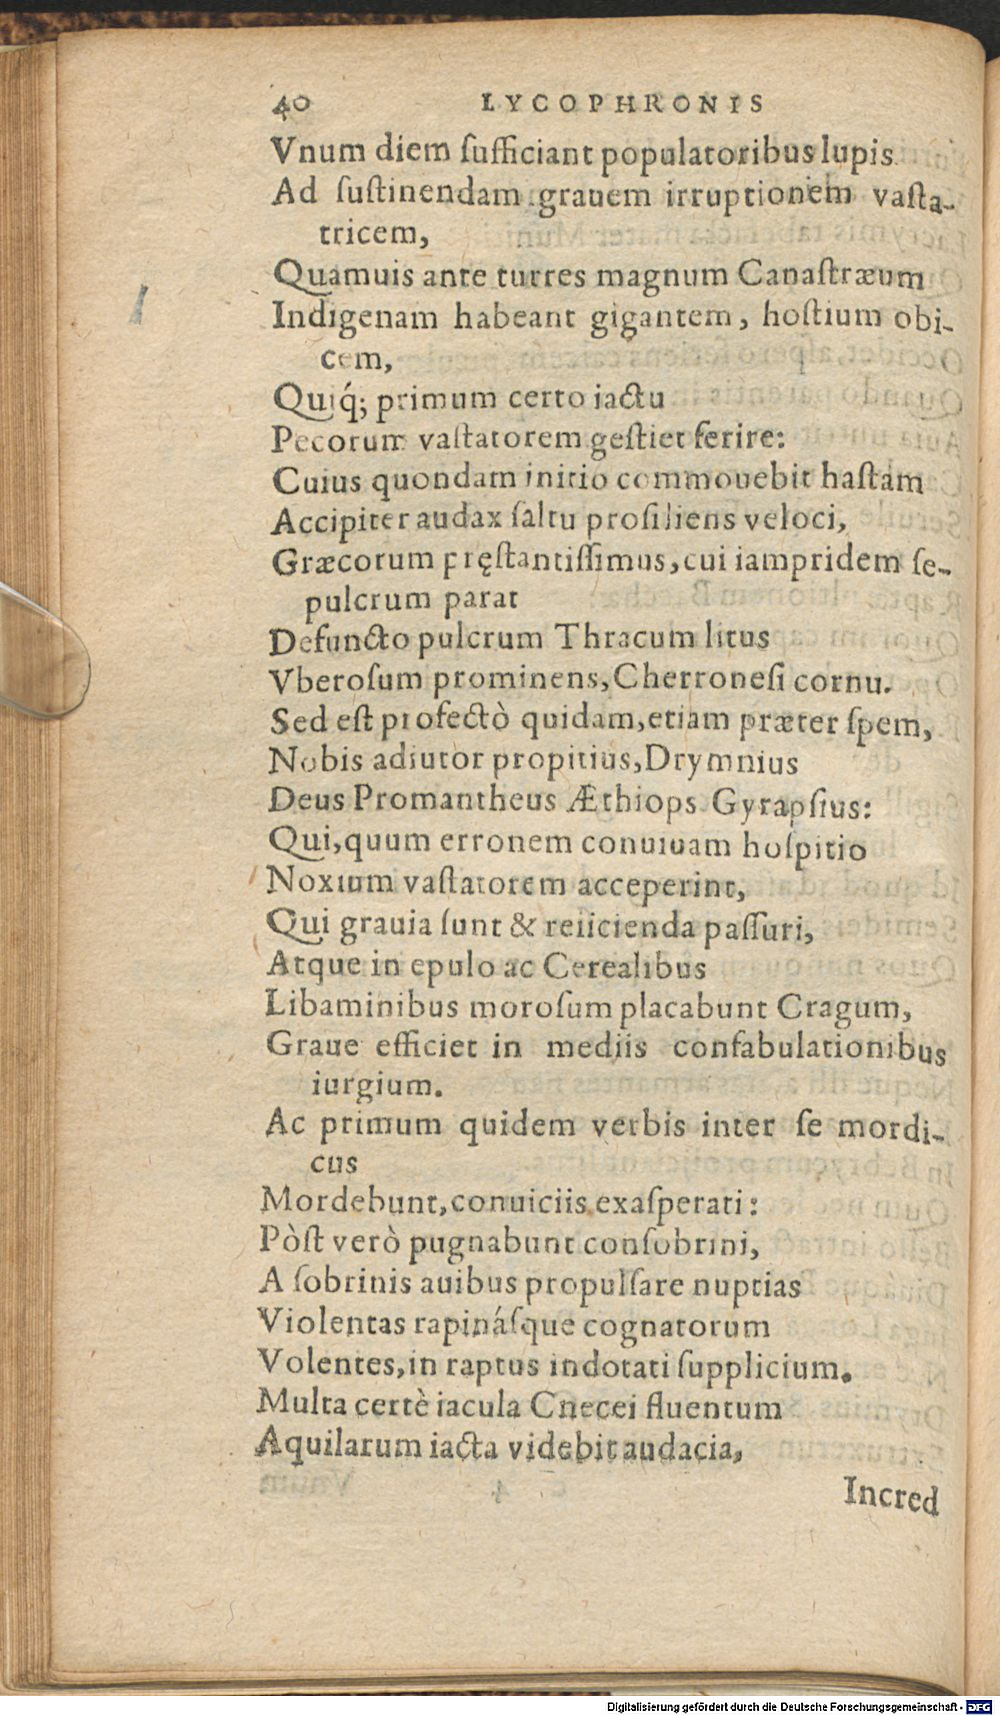 40 LYCOPHRONIS
Vnum diem ſufficiant populatoribus lupis
Ad ſuſtinendam grauem irruptionem vaſta-
tricem,
Quamuis ante turres magnum Canaſtræum
Indigenam habeant gigantem, hoſtium obi-
cem,
Quiq́; primum certo iactu
Pecorum vaſtatorem geſtiet ferire:
Cuius quondam initio commouebit haſtam
Accipiter audax ſaltu proſiliens veloci,
Græcorum pręſtantiſſimus, cui iampridem ſe-
pulcrum parat
Defuncto pulcrum Thracum litus
Vberoſum prominens, Cherroneſi cornu.
Sed eſt profectò quidam, etiam præter ſpem,
Nobis adiutor propitius, Drymnius
Deus Promantheus Æthiops Gyrapſius:
Qui, quum erronem conuiuam hoſpitio
Noxium vaſtatorem acceperint,
Qui grauia ſunt & reiicienda paſſuri,
Atque in epulo ac Cerealibus
Libaminibus moroſum placabunt Cragum,
Graue efficiet in mediis confabulationibus
iurgium.
Ac primum quidem verbis inter ſe mordi-
cus
Mordebunt, conuiciis exaſperati:
Pòſt verò pugnabunt conſobrini,
A ſobrinis auibus propulſare nuptias
Violentas rapináſque cognatorum
Volentes, in raptus indotati ſupplicium.
Multa certè iacula Cnecei fluentum
Aquilarum iacta videbit audacia,
Incred
Digitalisierung gefördert durch die Deutsche Forschungsgemeinschaft - DFG